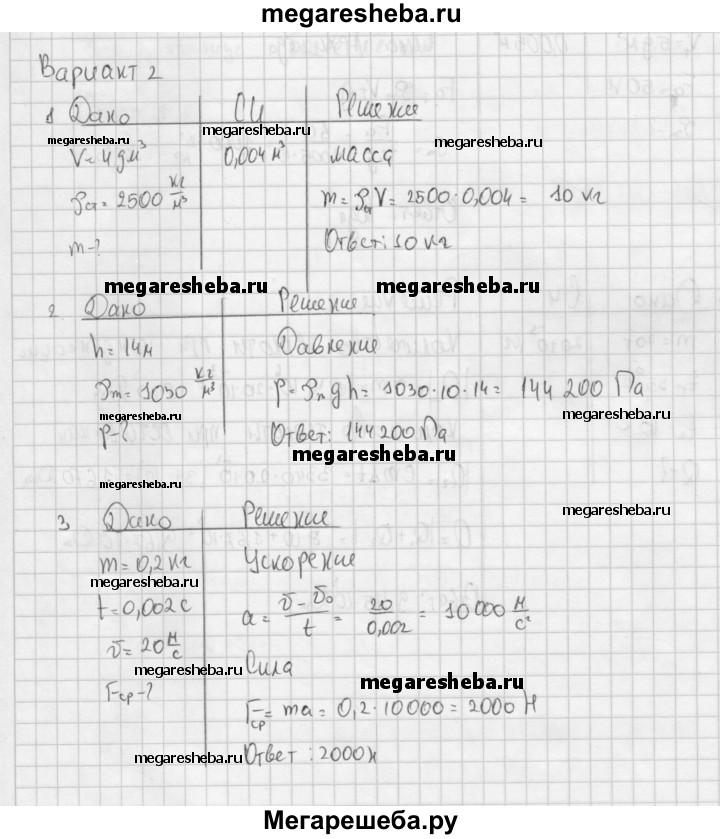 megaresheba.ru
Вариант 2
1 Дано СИ Решение
megaresheba.ru megaresheba.ru megaresheba.ru
V=4дм³ 0,004м³ масса
ρст=2500 кг/м³ m=ρстV=2500·0,004= 10 кг
m-? Ответ: 10 кг
megaresheba.ru megaresheba.ru
2. Дано Решение
h=14м Давление
ρm=1030 кг/м³ p=ρ gh=1030·10·14= 144 200 Па
megaresheba.ru megaresheba.ru
p-? Ответ: 144200 Па
megaresheba.ru
megaresheba.ru
megaresheba.ru
3. Дано Решение
m=0,2кг Ускорение
megaresheba.ru
t=0,002с a= (v-v₀)/t = 20/0,002 = 10000 м/с²
v=20 м/с
megaresheba.ru Сила
Fср-? megaresheba.ru
Fср=ma=0,2·10000=2000 Н
megaresheba.ru Ответ: 2000н
Мегарешеба.ру